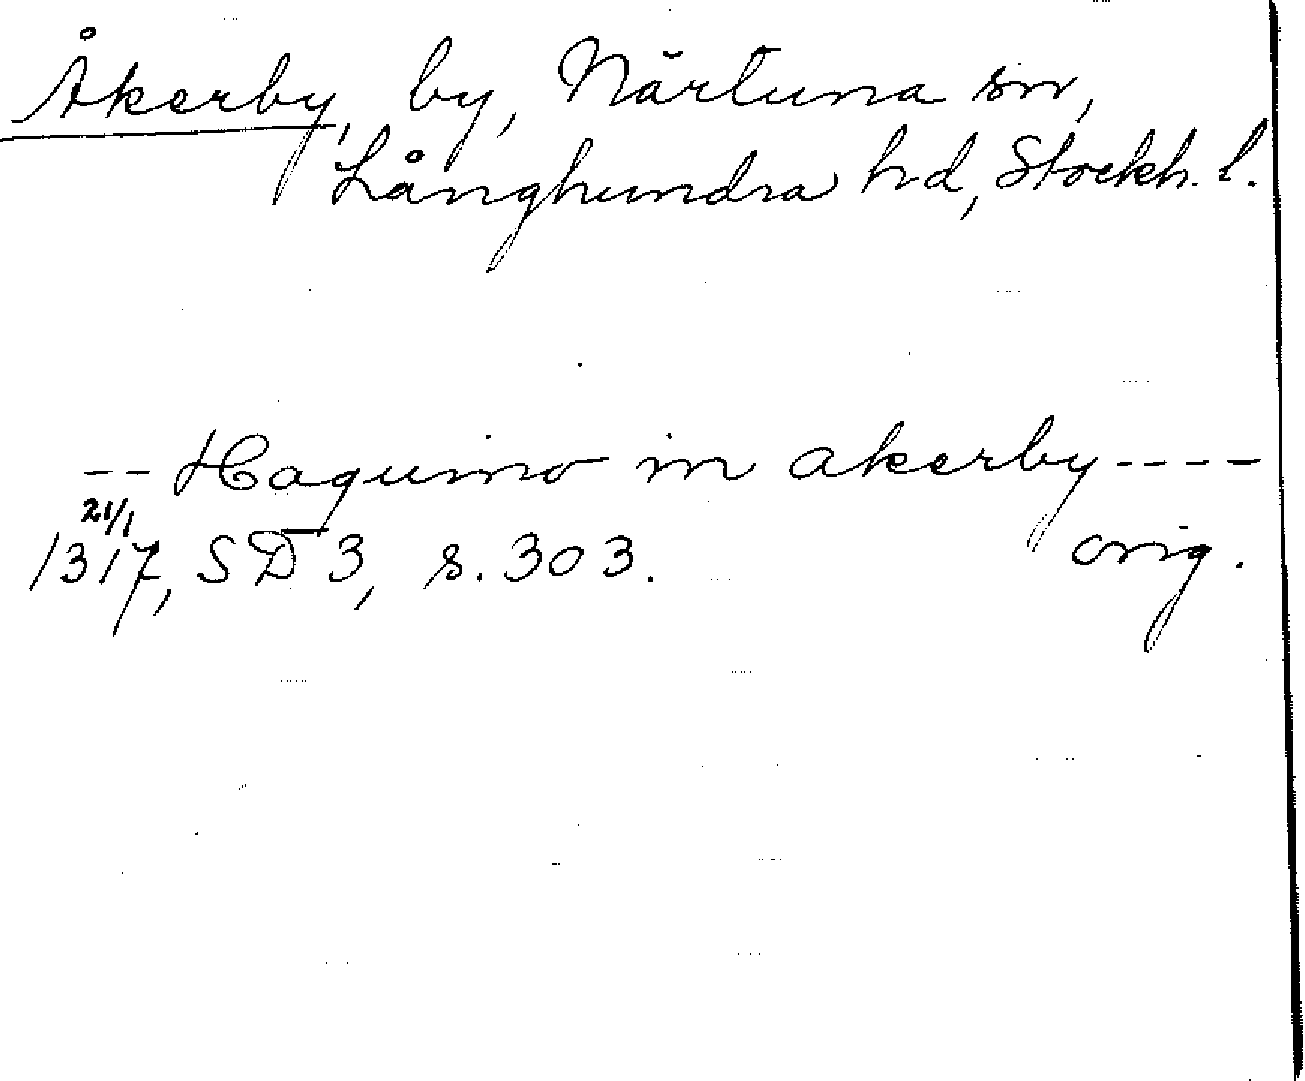 Åkerby, by, Närtuna sn,
Långhundra hd, Stockh. l.
-- Haquino in akerby ----
21/1
1317, SD 3, s. 303. orig.